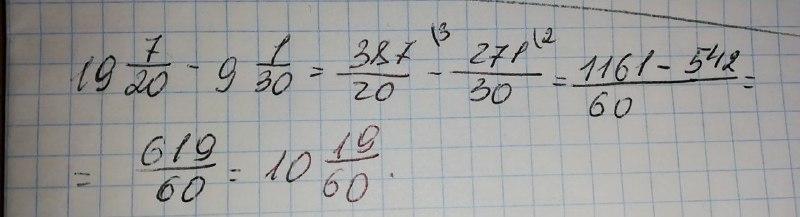 19 7/20 - 9 1/30 = 387/20 \3 - 271/30 \2 = 1161 - 542/60 =
= 619/60 = 10 19/60.